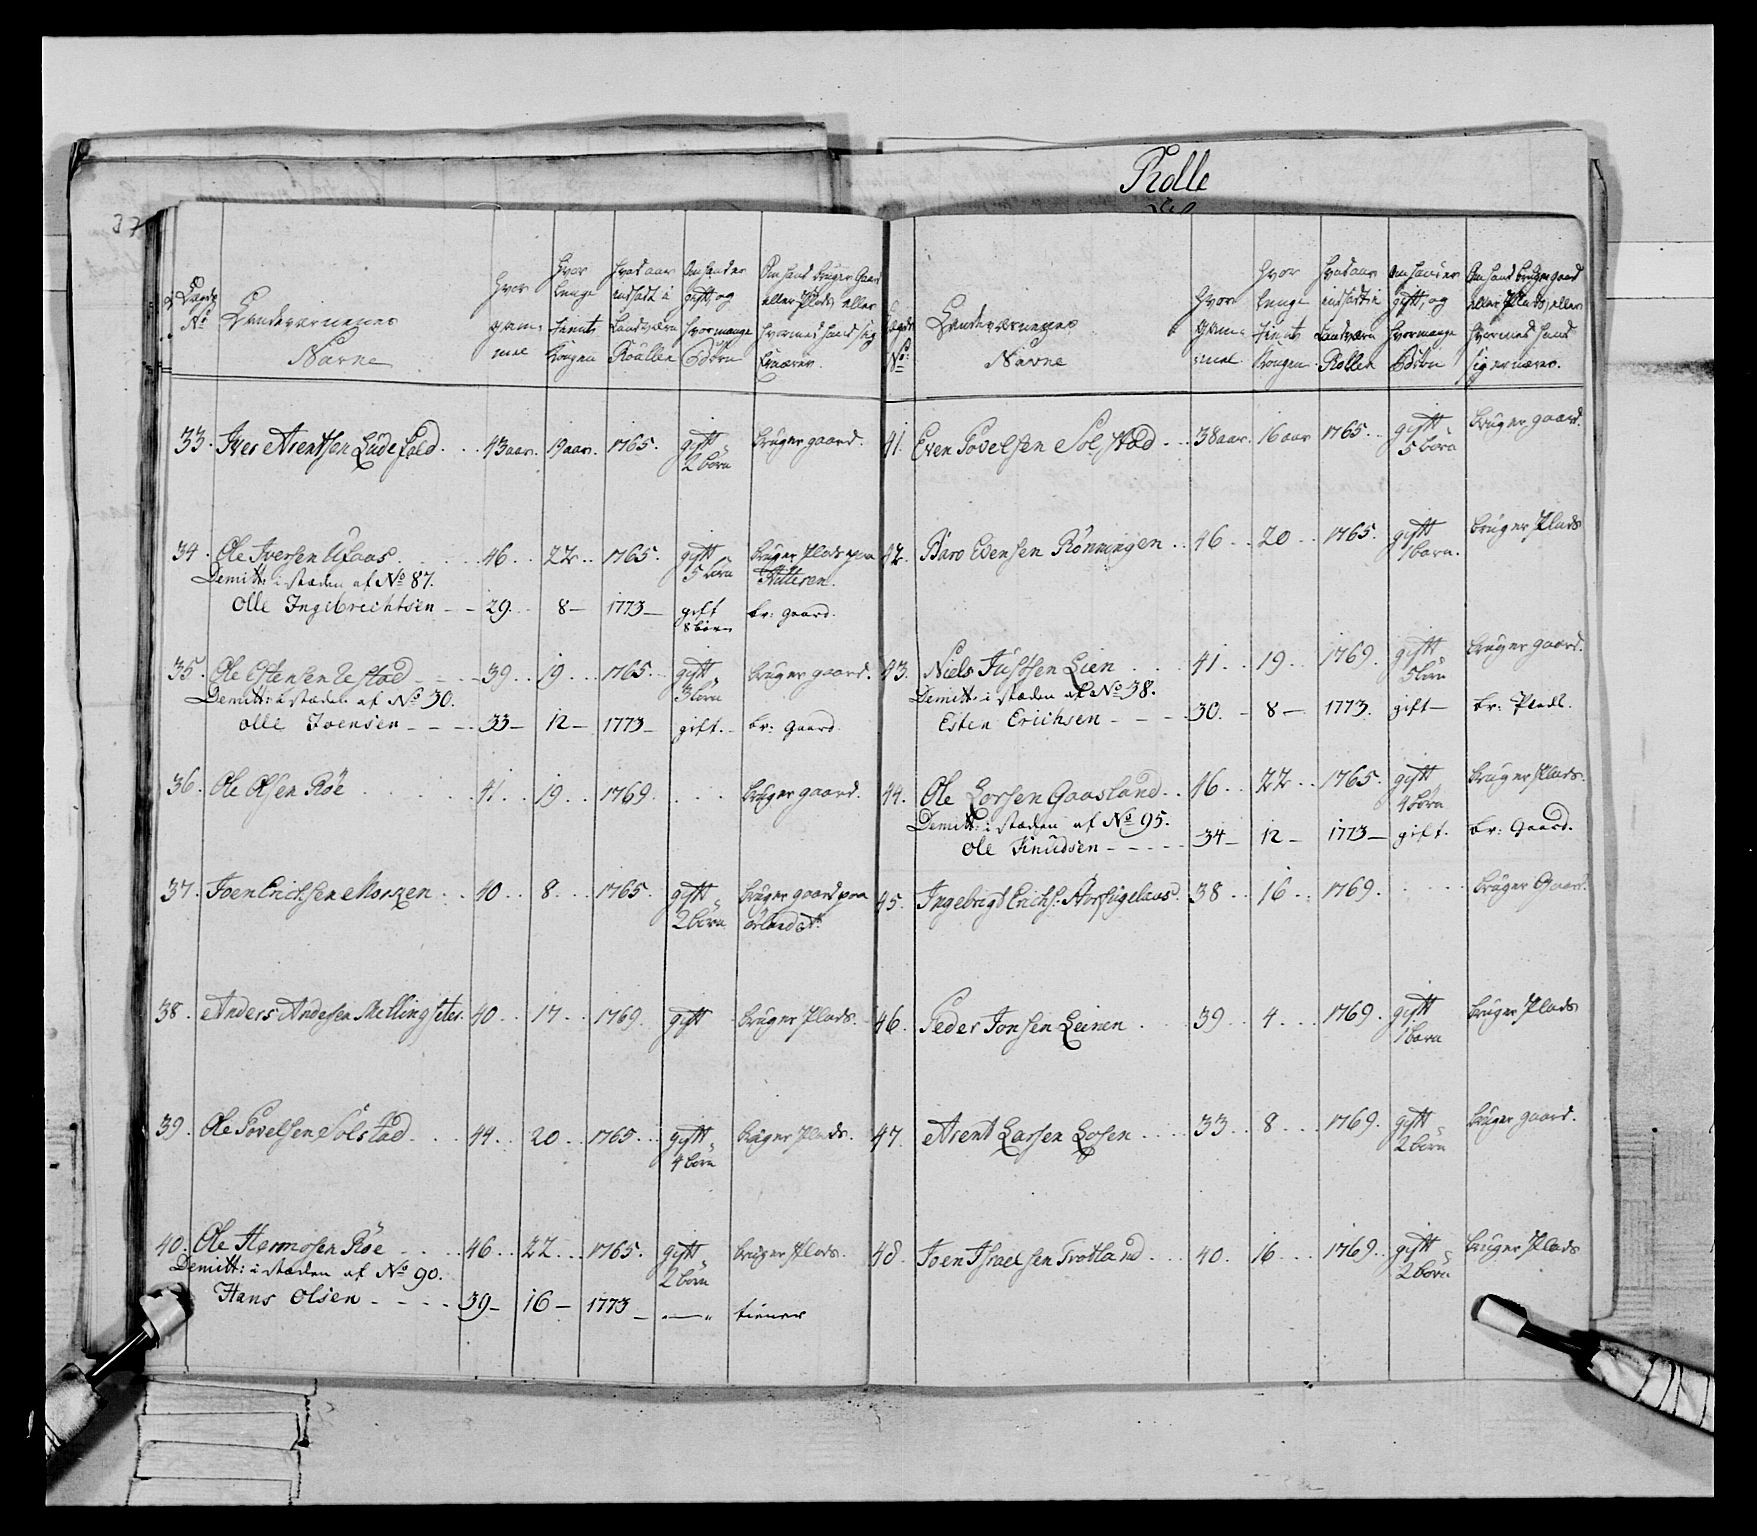 Rolle
37
No
Landeværnenes
Navne
Hvor
gam-
mel
Hvor
længe
tient
Kongen
Hvad aar
indsadt i
Landværn
Roullen
Om hand er
gift, og
hvormange
Börn
Om hand bruger Gaard
eller Plads, eller
hvormed hand sig
Ernærer.
33. Iver Arentsen Lüdefald . . 43 aar. 19 aar. 1765. gift 2 börn bruger gaard.
34. Ole Iversen Ufaas . . 46 . . 22 . . 1765. gift 5 börn bruger Plads paa
Demitt: i stæden af No 87.
Olle Ingebrechtsen - - 29. 8 - 1773 - gift 8 börn br: gaard.
35. Ole Estensen Estad - - 39 . . 19 . . 1765. gift 3 börn bruger gaard.
Demitt: i stæden af No 30.
Olle Joensen - - - 33 - 12 - 1773 - gift. - br: gaard
36. Ole Olsen Röe . . . 41 . . 19 . . 1769. . . . bruger gaard.
37. Joen Erichsen Morken . . 40 . . 8 . . 1765. gift 2 börn bruger gaard paa
örlandet.
38. Anders Andersen Mellingseter. 40 . . 17 . . 1769. gift bruger Plads.
39. Ole Povelsen Solstad . . . 44 . . 20 . . 1765. gift 4 börn bruger Plads.
40. Ole Hermosen Röe . . . 46 . . 22 . . 1765. gift 2 börn bruger Plads.
Demitt: i stæden af No 90.
Hans Olsen - - - - 39 - 16 - 1773 - tiener
No:
Landeværnenes
Navne
Hvor
gam-
mel.
Hvor
længe
tient
Kongen
Hvad aar
indsadt i
Landværn
Rollen
Om hand er
gift, og
hvormange
Börn
Om hand bruger gaard
eller Plads, eller
hvormed hand
sig ernærer.
41. Even Povelsen Solstad . . 38 aar. 16 aar 1765. gift 5 börn bruger gaard.
42. Baro Evensen Rönningen . . 46 . . 20 . . 1765. gift 1 barn. bruger Plads
43. Niels Justsen Lien . . . 41 . . 19 . . 1769. gift 5 börn bruger gaard.
Demitt: i stæden af No 38.
Esten Erichsen - - - 30. - 8 - 1773. gift - br: Pladl.
44. Ole Larsen Gaasland . . 46 . . 22 . . 1765. gift 4 börn bruger Plads.
Demitt: i stæden af No 95.
Ole Knudsen - - - - 34 - 12 - 1773 - gift. br: Gaard.
45. Ingebrigt Erichs: Storfugelaas. 38 . . 16 . . 1769. . . . brüger Gaard.
46. Peder Jonsen Leinen . . 39 . . 4 . . . 1769. gift 1 barn bruger Plads
47. Arent Larsen Losen . . . 33 . . 8 . . . 1769. gift 2 börn bruger gaard.
48. Joen Israelsen Trotland . . 40. 16 . . . 1769. gift 2 börn bruger Plads